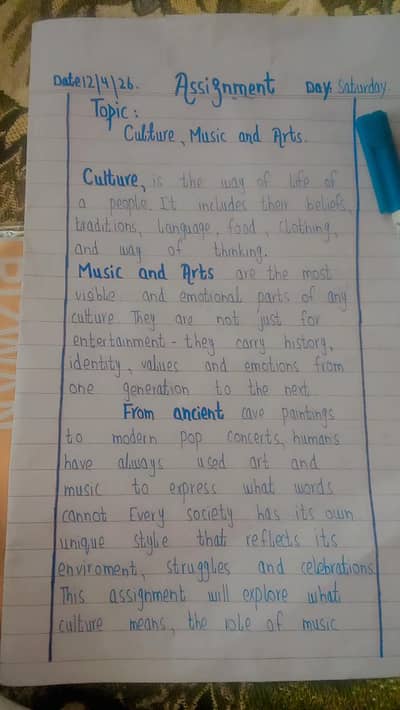 Date 12/4/26. Assignment Day: Saturday.
Topic:
Culture, Music and Arts.
Culture, is the way of life of
a people. It includes their beliefs,
traditions, language, food, clothing,
and way of thinking.
Music and Arts are the most
visible and emotional parts of any
culture They are not just for
entertainment - they carry history,
identity, values and emotions from
one generation to the next.
From ancient cave paintings
to modern pop concerts, humans
have always used art and
music to express what words
cannot Every society has its own
unique style that reflects its
enviroment, struggles and celebrations
This assignment will explore what
culture means, the role of music